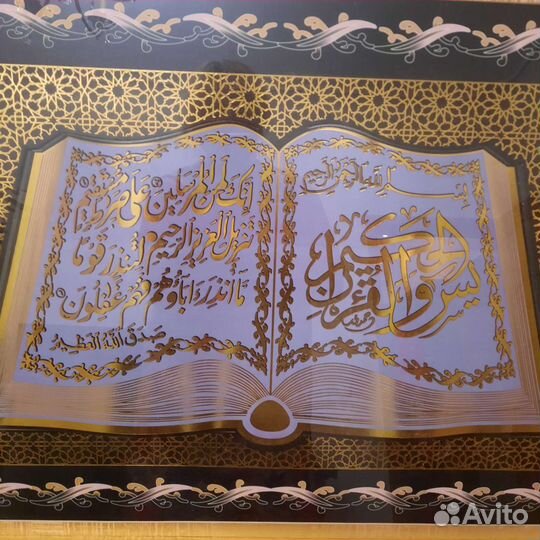 بسم الله الرحمن الرحيم
يس والقرآن الحكيم
إنك لمن المرسلين على صراط مستقيم
تنزيل العزيز الرحيم لتنذر قوما
ما أنذر آباؤهم فهم غفلون
صدق الله العظيم
Avito